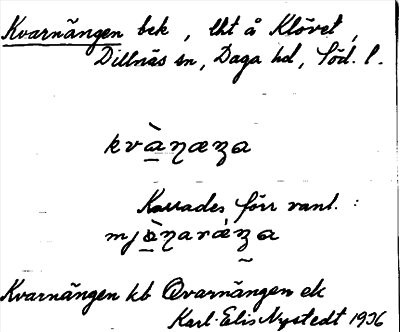 Kvarnängen bek, lht å Klövet,
Dillnäs sn, Daga hd, Söd. l.
kvà̱ɳæza
Kallades förr vanl. :
mjò̱ɳarǽza
Kvarnängen kb Qvarnängen ek
Karl-Elis Nystedt 1936